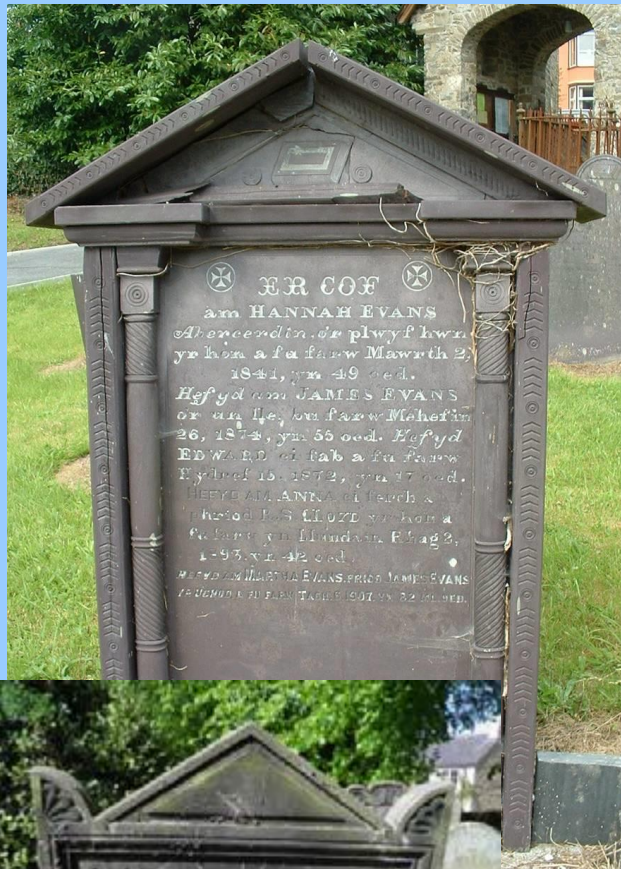 ER COF
am HANNAH EVANS
Abercerdin, o'r plwyf hwn
yr hon a fu farw Mawrth 2,
1841, yn 49 oed.
Hefyd am JAMES EVANS
or un lle, bu farw Mehefin
26, 1874, yn 55 oed. Hefyd
EDWARD ei fab a fu farw
Hydref 15, 1872, yn 17 oed.
HEFYD AM ANNA ei ferch a
phriod LLOYD yr hon a
fu farw yn Llundain Rhag 2,
yn 42 oed.
HEFYD AM MARTHA EVANS, PRIOD JAMES EVANS
UCHOD A FU FARW 1907, YN 82 ML. OED.